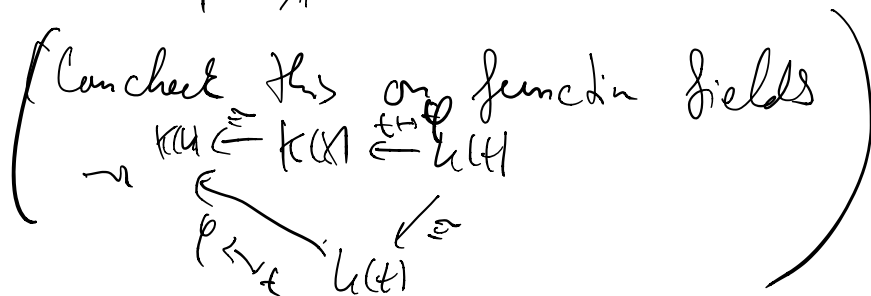 (Can check this on function fields)
K(U) ≅← K(X) t↦φ ← k(t)
⇝
≅
φ ↤ t k(t)